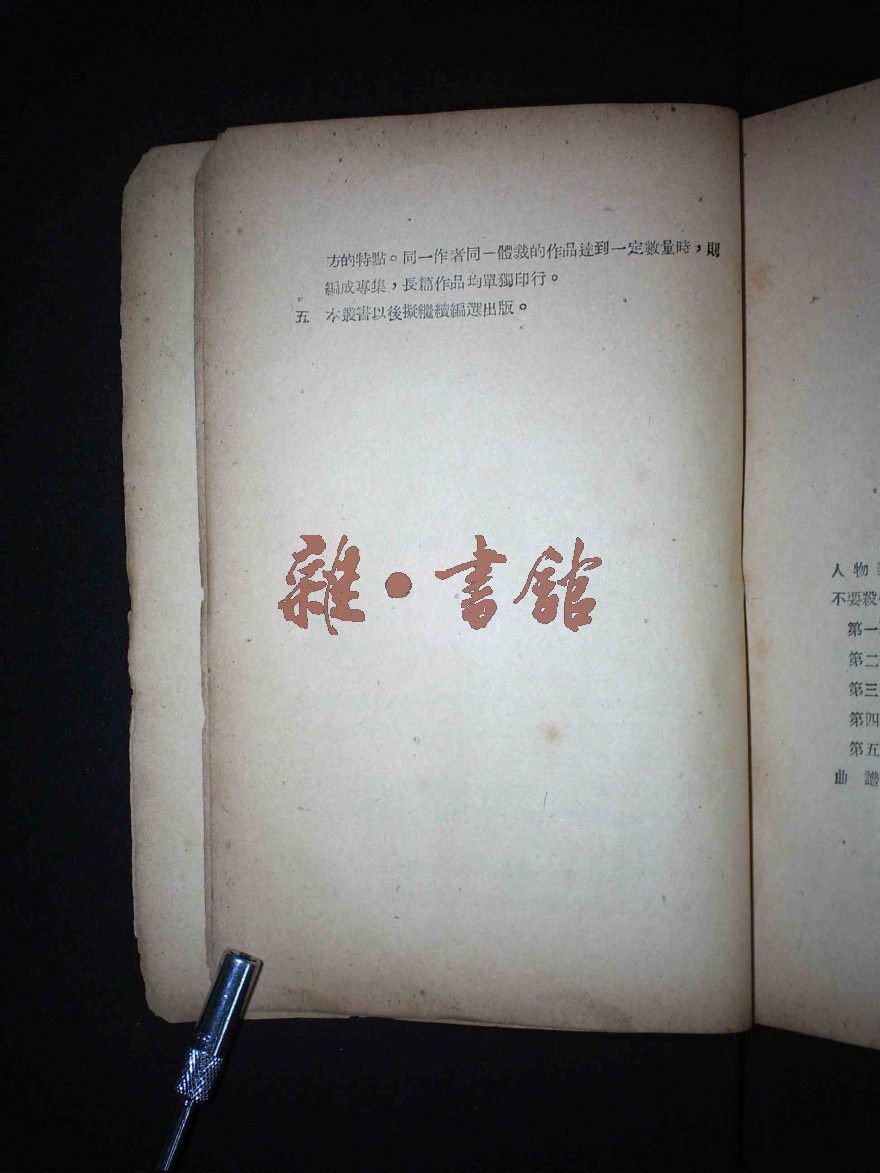 方的特點。同一作者同一體裁的作品達到一定數量時，則
編成專集，長篇作品均單獨印行。
五 本叢書以後擬繼續編選出版。
雜·書館
人物
不要殺
第一
第二
第三
第四
第五
曲 譜